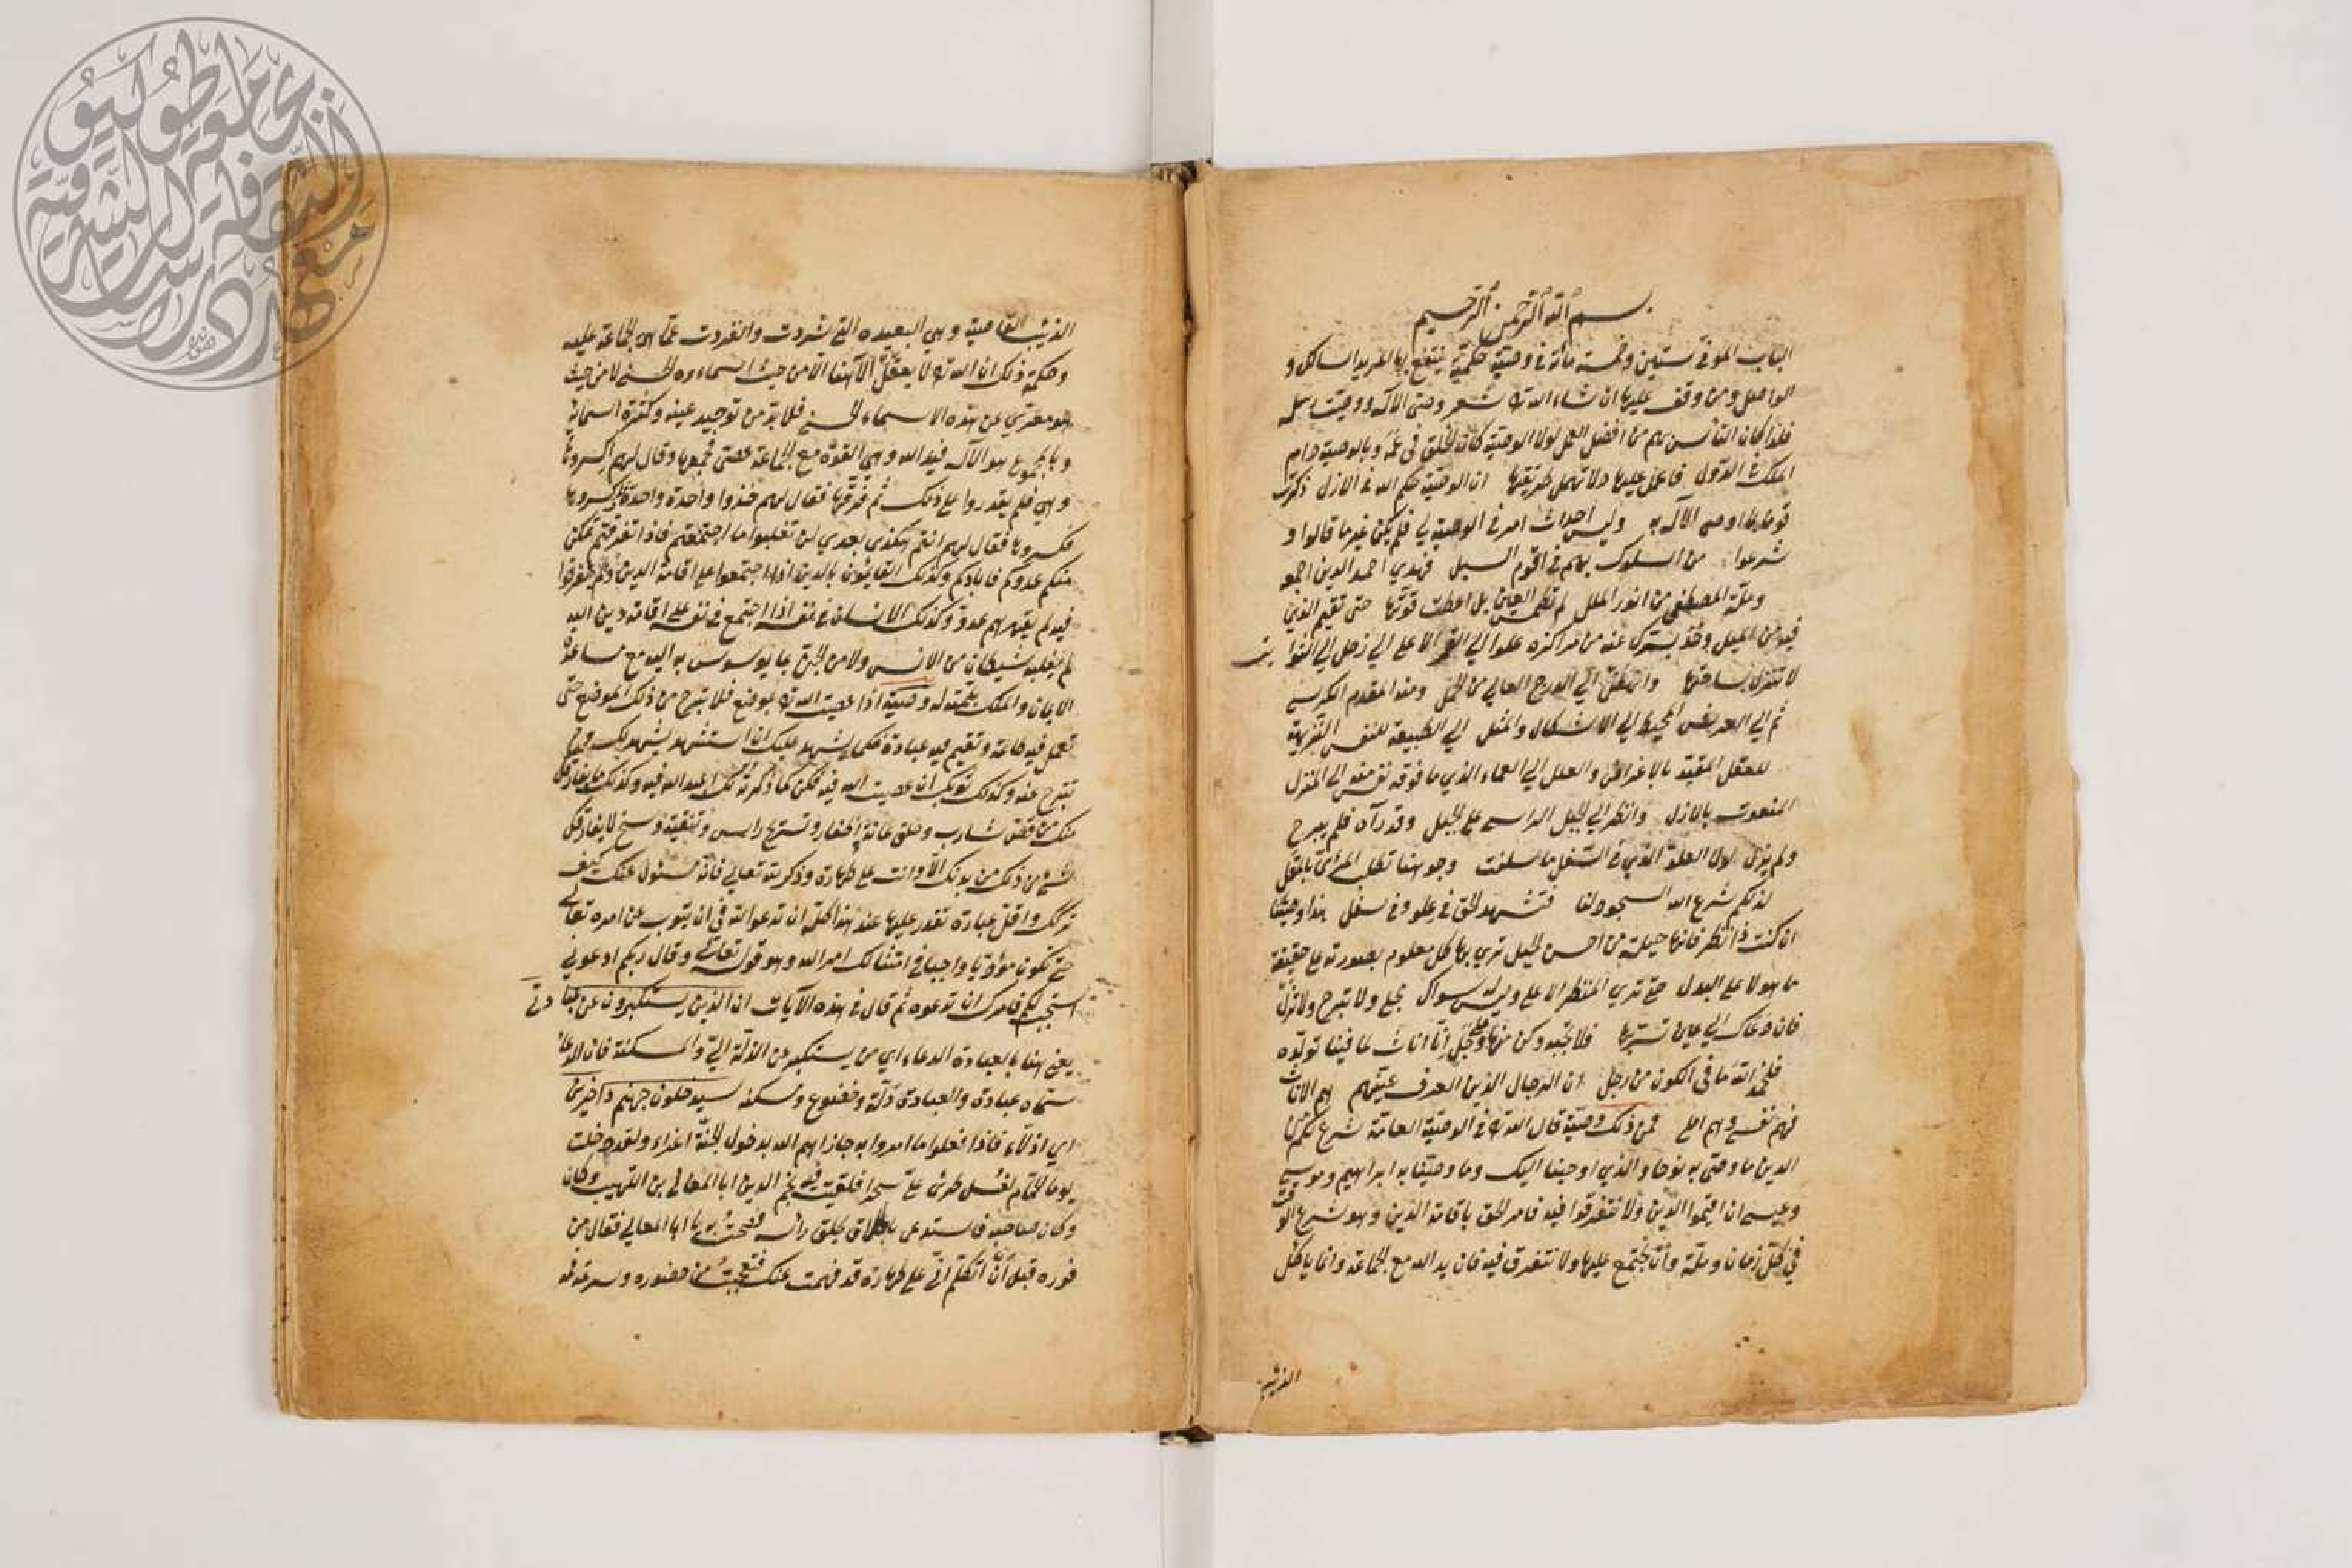 بسم الله الرحمن الرحيم
الباب الموفي ستين وخمسة مائة في وصية حكمية ينتفع بها المريد السالك و
الواصل ومن وقف عليها ان شاء الله تع شعر وصى الاله ووصت رسله
فلذا كان التأسي بهم من افضل العمل لولا الوصية كان الخلق في عمه وبالوصية دام
الملك في الدول فاعمل عليها ولا تهمل طريقتها ان الوصية حكم الله في الازل ذكرت
قوما بما اوصى الاله به وليس احداث امر في الوصية لي فلم يكن غير ما قالوا و
شرعوا من السلوك بهم في اقوم السبل فهدي احمد الدين اجمعه
وملة المصطفى من انور الملل لم تطمس العين بل اعطت قوتها حتى تقيم الذي
فيه من الميل وخذ بسرك عنه من مراكزه علوا الي القمر الاعلى الي زحل الي الثوابت
لا تنزل بساحتها وانهض الي الدرج العالي من الحمل ومنه المقدم الكرسي
ثم الي العرش المحيط الي الاشكال والمثل الي الطبيعة للنفس النزيهة
للعقل المقيد بالاعراض والعلل الي العماء الذي ما فوقه نفس منه الي المنزل
المنعوت بالازل وانظر الي الجبل الراسي علي الجبل وقد رآه فلم يبرح
ولم يزل لولا العلو الذي في السفل ما سفلت وجوهنا تطلب المرئي بالمقل
لذلكم شرع الله السجود لنا فتشهد الحق في علو وفي سفل هذا وصيتنا
ان كنت ذا نظر فانها حيلة من احسن الحيل تري بها كل معلوم بصورته علي حقيقة
ما هو لا علي البدل حتي تري المنظر الاعلى وليس له سواك مجلي ولا تبرح ولا تزل
فان دعاك الي عين تسر بها فلا تجبه وكن منها علي وجل انا اناث لما فينا تولده
فلنحمد الله ما في الكون من رجل ان الرجال الذين العرف عينهم هم الاناث
فهم نفسي وهم املي فمن ذلك وصية قال الله تع في الوصية العامة شرع لكم من
الدين ما وصى به نوحا والذي اوحينا اليك وما وصينا به ابراهيم وموسي
وعيسي ان اقيموا الدين ولا تتفرقوا فيه فامر الحق باقامة الدين وهو شرع الوقت
في كل زمان وملة وان يجتمع عليها ولا تتفرق فيه فان يد الله مع الجماعة وانما ياكل
الذئب
الذئب القاصية وهي البعيدة التي شردت وانفردت عما هي الجماعة عليه
وحكمة ذلك ان الله تع لا يعقل الآهنا الا من حيث اسماءه الحسني لا من حيث
هو معري عن هذه الاسماء الحسني فلا بد من توحيد عينه وكثرة اسمائه
وبالمجموع هو الاله فيد الله وهي القوة مع الجماعة عصى فجمعها وقال لهم اكسروها
وهي فلم يقدروا علي ذلك ثم فرقها فقال لهم خذوا واحدة واحدة فاكسروها
فكسروها فقال لهم انتم هكذى بعدي لن تغلبوا ما اجتمعتم فاذا تفرقتم تمكن
منكم عدوكم فابادكم وكذلك القايمون بالدين اذا اجتمعوا علي اقامة الدين ولم يتفرقوا
فيه لم يقهرهم عدو وكذلك الانسان في نفسه اذا اجتمع في نفسه علي اقامة دين الله
لم يغلبه شيطان من الانس ولا من الجن بما يوسوس به اليه مع مساعدة
الايمان والملك بلمته له وصية اذا عصيت الله تع بموضع فلا تبرح من ذلك الموضع حتى
تعمل فيه طاعة وتقيم فيه عبادة فكما يشهد عليك ان استشهد يشهد لك وح
تبرح عنه وكذلك ثوبك ان عصيت الله فيه فكن كما ذكرته لك اعبد الله فيه وكذلك ما يفارقك
منك من قص شارب وحلق عانة واظفار وتسريح راس وتنقية وسخ لا يفارقك
شئ من ذلك من بدنك الا وانت علي طهارة وذكر لله تعالي فانه مسئول عنك كيف
تركك واقل عبادة تقدر عليها عند هذا كله ان تدعو الله في ان يتوب عن امره تعالي
حتي تكون مؤديا واجبا في امتثالك امر الله وهو قوله تعالي وقال ربكم ادعوني
استجب لكم فامرك ان تدعوه ثم قال في هذه الآيات ان الذين يستكبرون عن عبادتي
يعني هنا بالعبادة الدعاء اي من يستكبر عن الذلة الي والمسكنة فان الدعاء
سماه عبادة والعبادة ذلة وخضوع ومسكنه سيدخلون جهنم داخرين
اي اذلاء فاذا فعلوا ما امروا به جازاهم الله بدخول الجنة اعزاء ولقد دخلت
يوما الحمام لغسل طرئ علي سحرا فلقيت فيه نجم الدين ابا المعالي بن اللهيب وكان
وكان صاحبي فاستدعى بالحلاق يحلق رأسه فصحت به يا ابا المعالي فقال من
فوره قبل ان اتكلم اني علي طهارة قد فهمت عنك فتعجبت من حضوره وسرعة فهمه